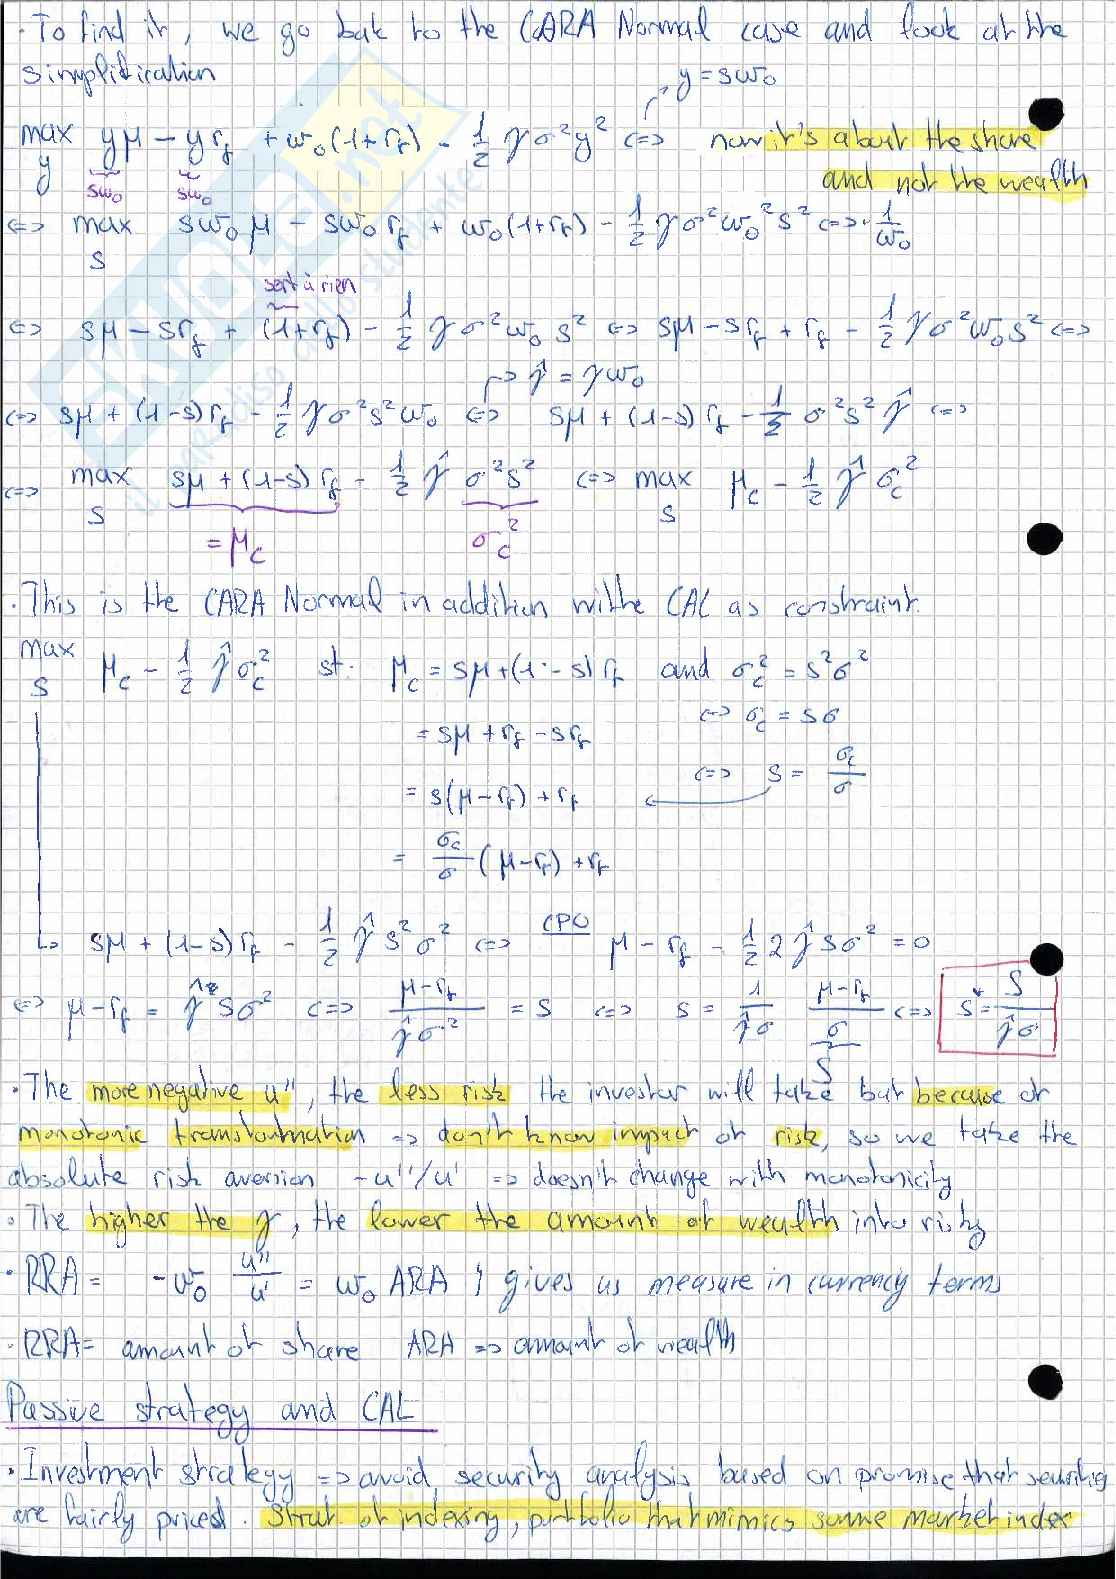 · To find it, we go bak to the CARA Normal case and look at the
simplification
↱ y = sw₀
max yμ − y r_f + w₀(1+r_f) − 1/2 γ σ² y² <=> now it's about the share
y sw₀ sw₀ and not the wealth
<=> max sw₀ μ − sw₀ r_f + w₀(1+r_f) − 1/2 γ σ² w₀² s² <=> · 1/w₀
s
sert à rien
<=> sμ − s r_f + (1+r_f) − 1/2 γ σ² w₀ s² <=> sμ − s r_f + r_f − 1/2 γ σ² w₀ s² <=>
↱ γ̂ = γ w₀
<=> sμ + (1−s) r_f − 1/2 γ σ² s² w₀ <=> sμ + (1−s) r_f − 1/2 σ² s² γ̂ <=>
<=> max sμ + (1−s) r_f − 1/2 γ̂ σ² s² <=> max μ_c − 1/2 γ̂ σ_c²
s = μ_c σ_c² s
· This is the CARA Normal in addition withe CAL as constraint.
max μ_c − 1/2 γ̂ σ_c² st: μ_c = sμ + (1−s) r_f and σ_c² = s² σ²
s <=> σ_c = sσ
= sμ + r_f − s r_f
<=> s = σ_c/σ
= s(μ − r_f) + r_f
= σ_c/σ (μ − r_f) + r_f
↳ sμ + (1−s) r_f − 1/2 γ̂ s² σ² <=> CPO μ − r_f − 1/2 2 γ̂ s σ² = 0
<=> μ − r_f = γ̂ s σ² <=> (μ − r_f)/(γ̂ σ²) = s <=> s = 1/(γ̂ σ) (μ − r_f)/σ <=> s* = S/(γ̂ σ)
S
· The more negative u'', the less risk the investor will take but because of
monotonic transformation => don't know impact of risk, so we take the
absolute risk aversion −u''/u' => doesn't change with monotonicity
· The higher the γ, the lower the amount of wealth into risky
· RRA = −w₀ u''/u' = w₀ ARA } gives us measure in currency terms
· RRA = amount of share ARA => amount of wealth
Passive strategy and CAL
· Investment strategy => avoid security analysis based on promise that securities
are fairly priced. Strat. of indexing, portfolio that mimics some market index